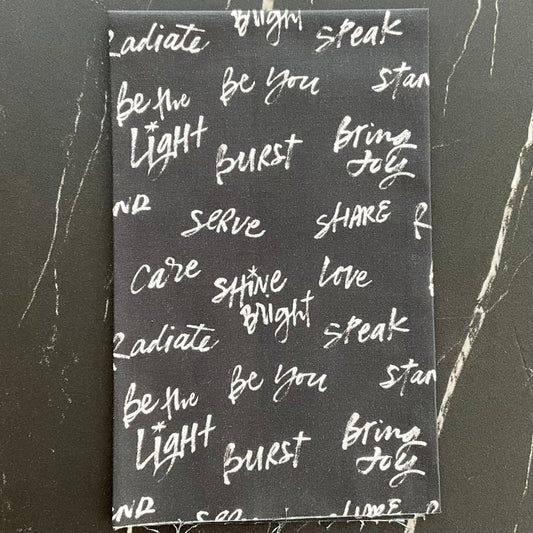 Bright
Radiate
Speak
Be You
Stan
Be the
Light
Burst
Bring
Joy
ND
Serve
SHARE
R
Care
SHINE
Bright
love
Radiate
Speak
Be You
Stan
Be the
Light
BURST
Bring
Joy
ND
Serve
SHARE
R